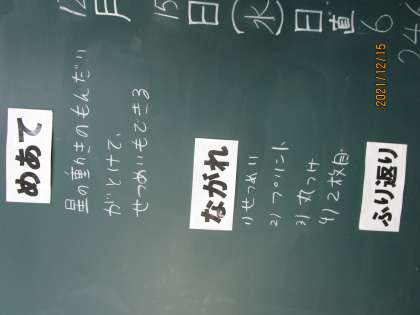 12月 15日(水) 日直 6
めあて
星の動きのもんだい
がとけて、
せつめいもできる
ながれ
1)せつめい
2)プリント
3)丸つけ
4)2枚目
ふり返り
2021/12/15